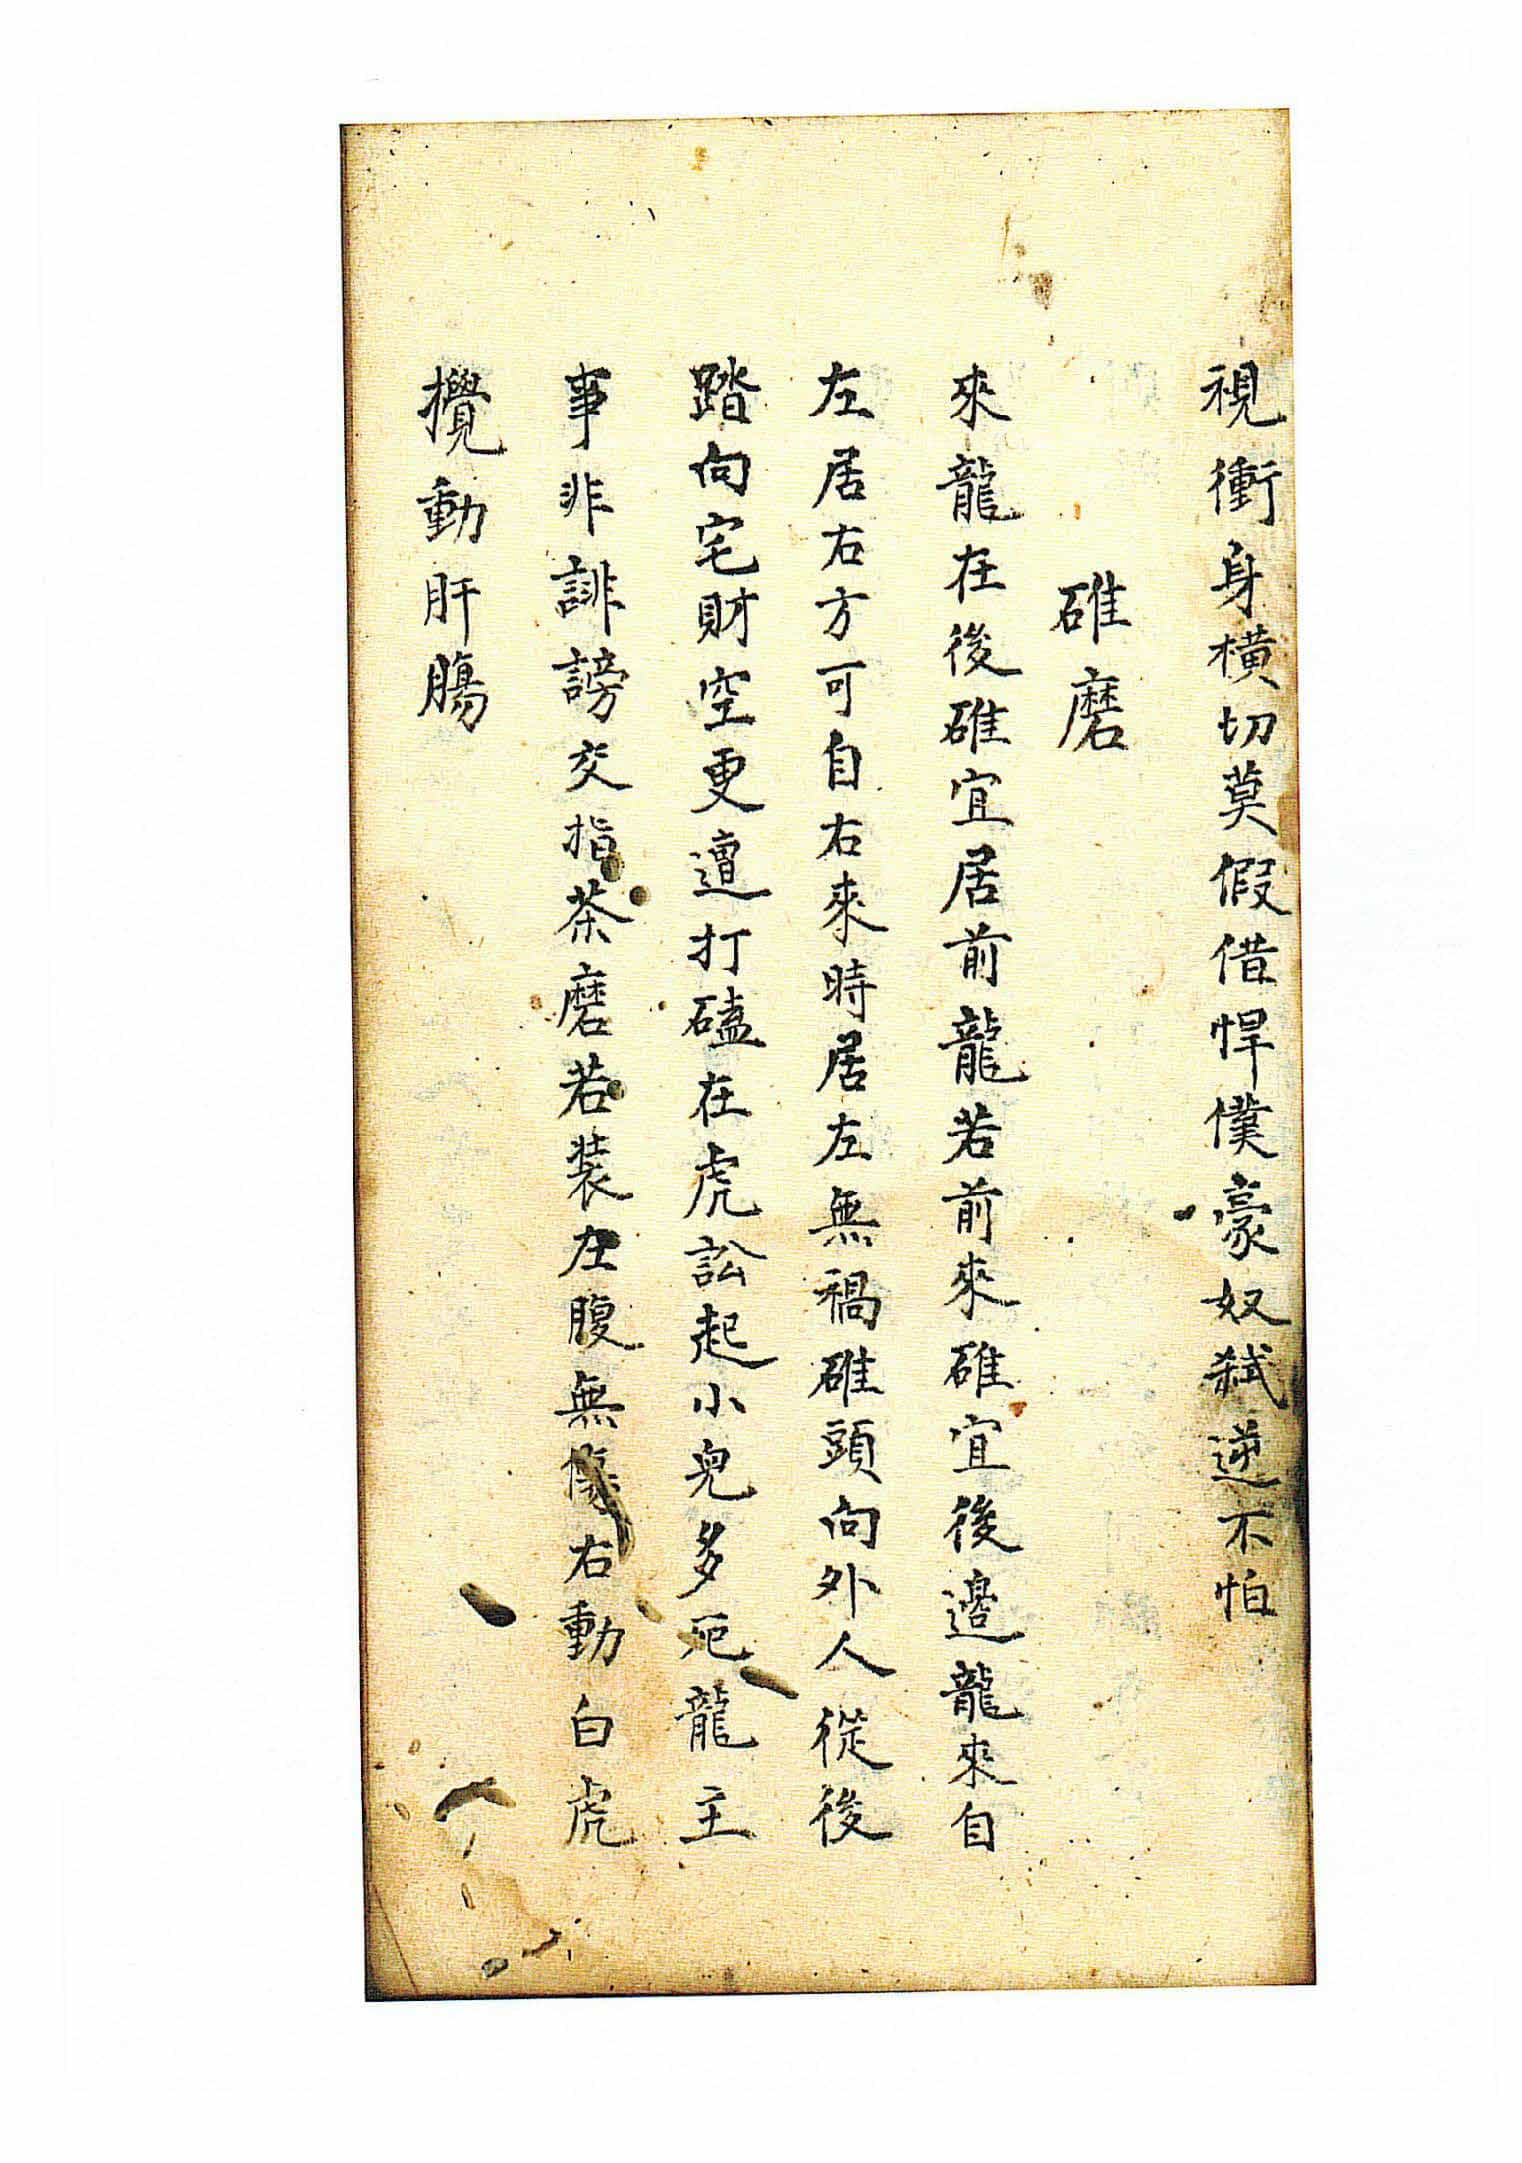 視衝身橫切莫假借悍僕豪奴弒逆不怕
碓磨
來龍在後碓宜居前龍若前來碓宜後邊龍來自
左居右方可自右來時居左無禍碓頭向外人從後
踏向宅財空更遭打磕在虎訟起小兒多厄龍主
事非誹謗交指茶磨若裝左腹無傷右動白虎
攪動肝腸